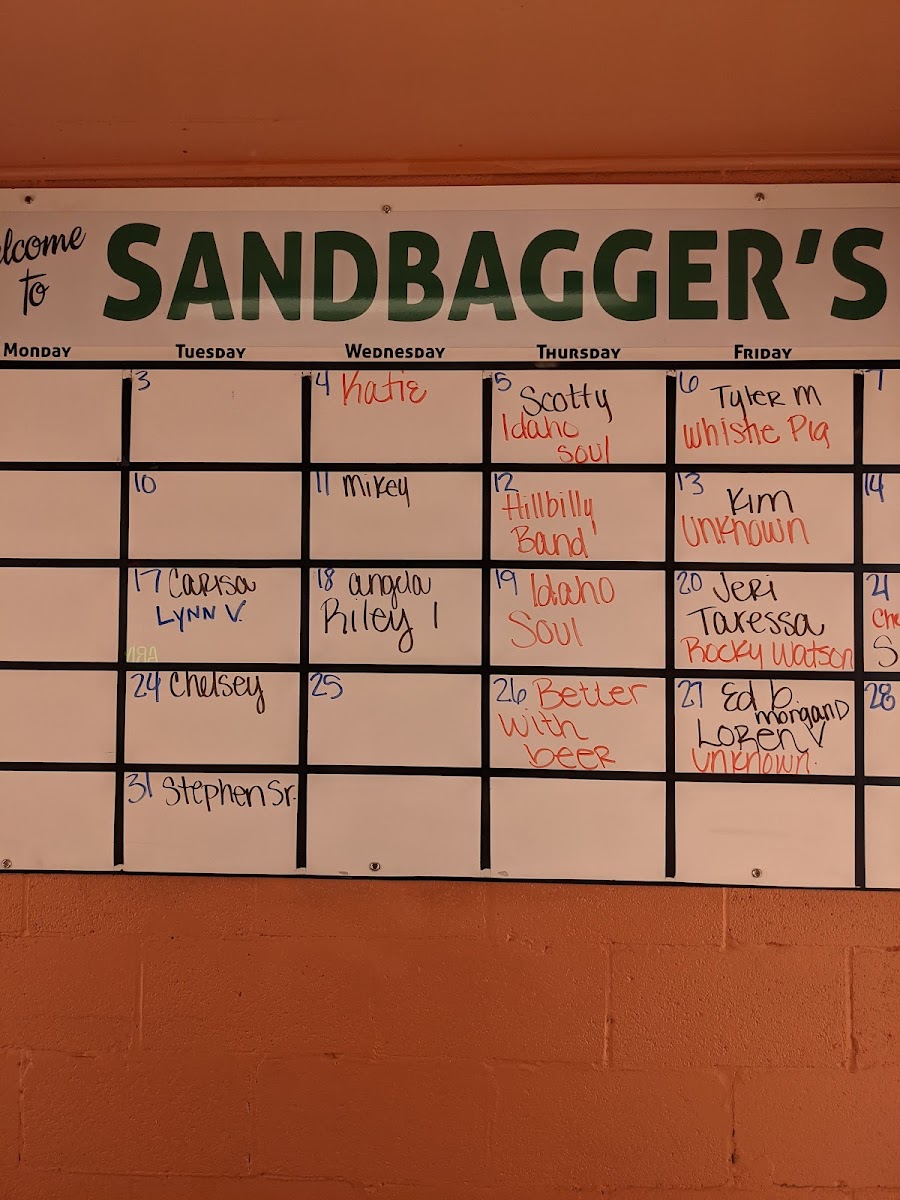 elcome
to
SANDBAGGER'S
MONDAY TUESDAY WEDNESDAY THURSDAY FRIDAY
3
4 Katie
5 Scotty
Idaho
soul
6 Tyler M
Whishe Pig
7
10
11 Mikey
12
Hillbilly
Band
13 Kim
Unknown
14
17 Carisa
LYNN V.
18 angela
Riley I
19 Idaho
Soul
20 Jeri
Taressa
Rocky Watson
21
Che
S
24 Chelsey
25
26 Better
with
beer
27 Ed b.
morgan D
Loren V
Unknown.
28
31 Stephen Sr.